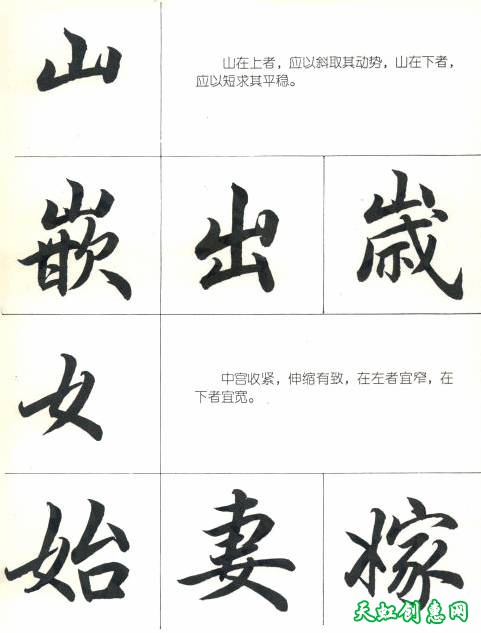 山
山在上者，应以斜取其动势，山在下者，
应以短求其平稳。
嵌 出 歳
女
中宫收紧，伸缩有致，在左者宜窄，在
下者宜宽。
始 妻 嫁
天虹创意网